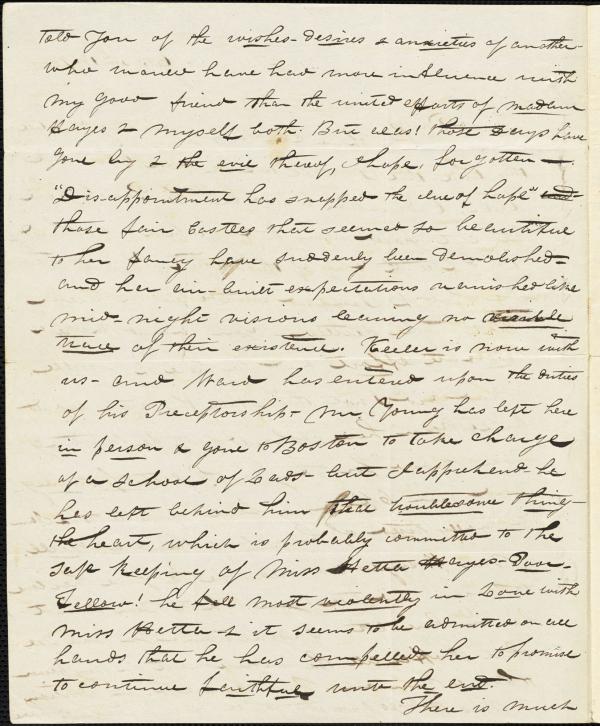 told you of the wishes-desires & anxieties of another
who would have had more influence with
my good friend than the united efforts of madam
Hayes & myself both. But alas! those days have
gone by & the evil thereof, I hope, forgotten —
"Disappointment has snapped the clue of hope" and
those fair Castles that seemed so beautiful
to her fancy have suddenly been demolished-
and her air-built expectations vanished like
mid-night visions leaving no visible
trace of their existence. Keeler is now with
us- and Ward has entered upon the duties
of his Preceptorship- Mr. Young has left here
in person & gone to Boston to take charge
of a School of Lads- but I apprehend he
has left behind him that troublesome thing-
the heart, which is probably committed to the
safe keeping of Miss Hetta Hayes- Poor-
Fellow! he fell most violently in Love with
Miss Hetta & it seems to be admitted on all
hands that he has compelled her to promise
to continue faithful unto the end.
There is much